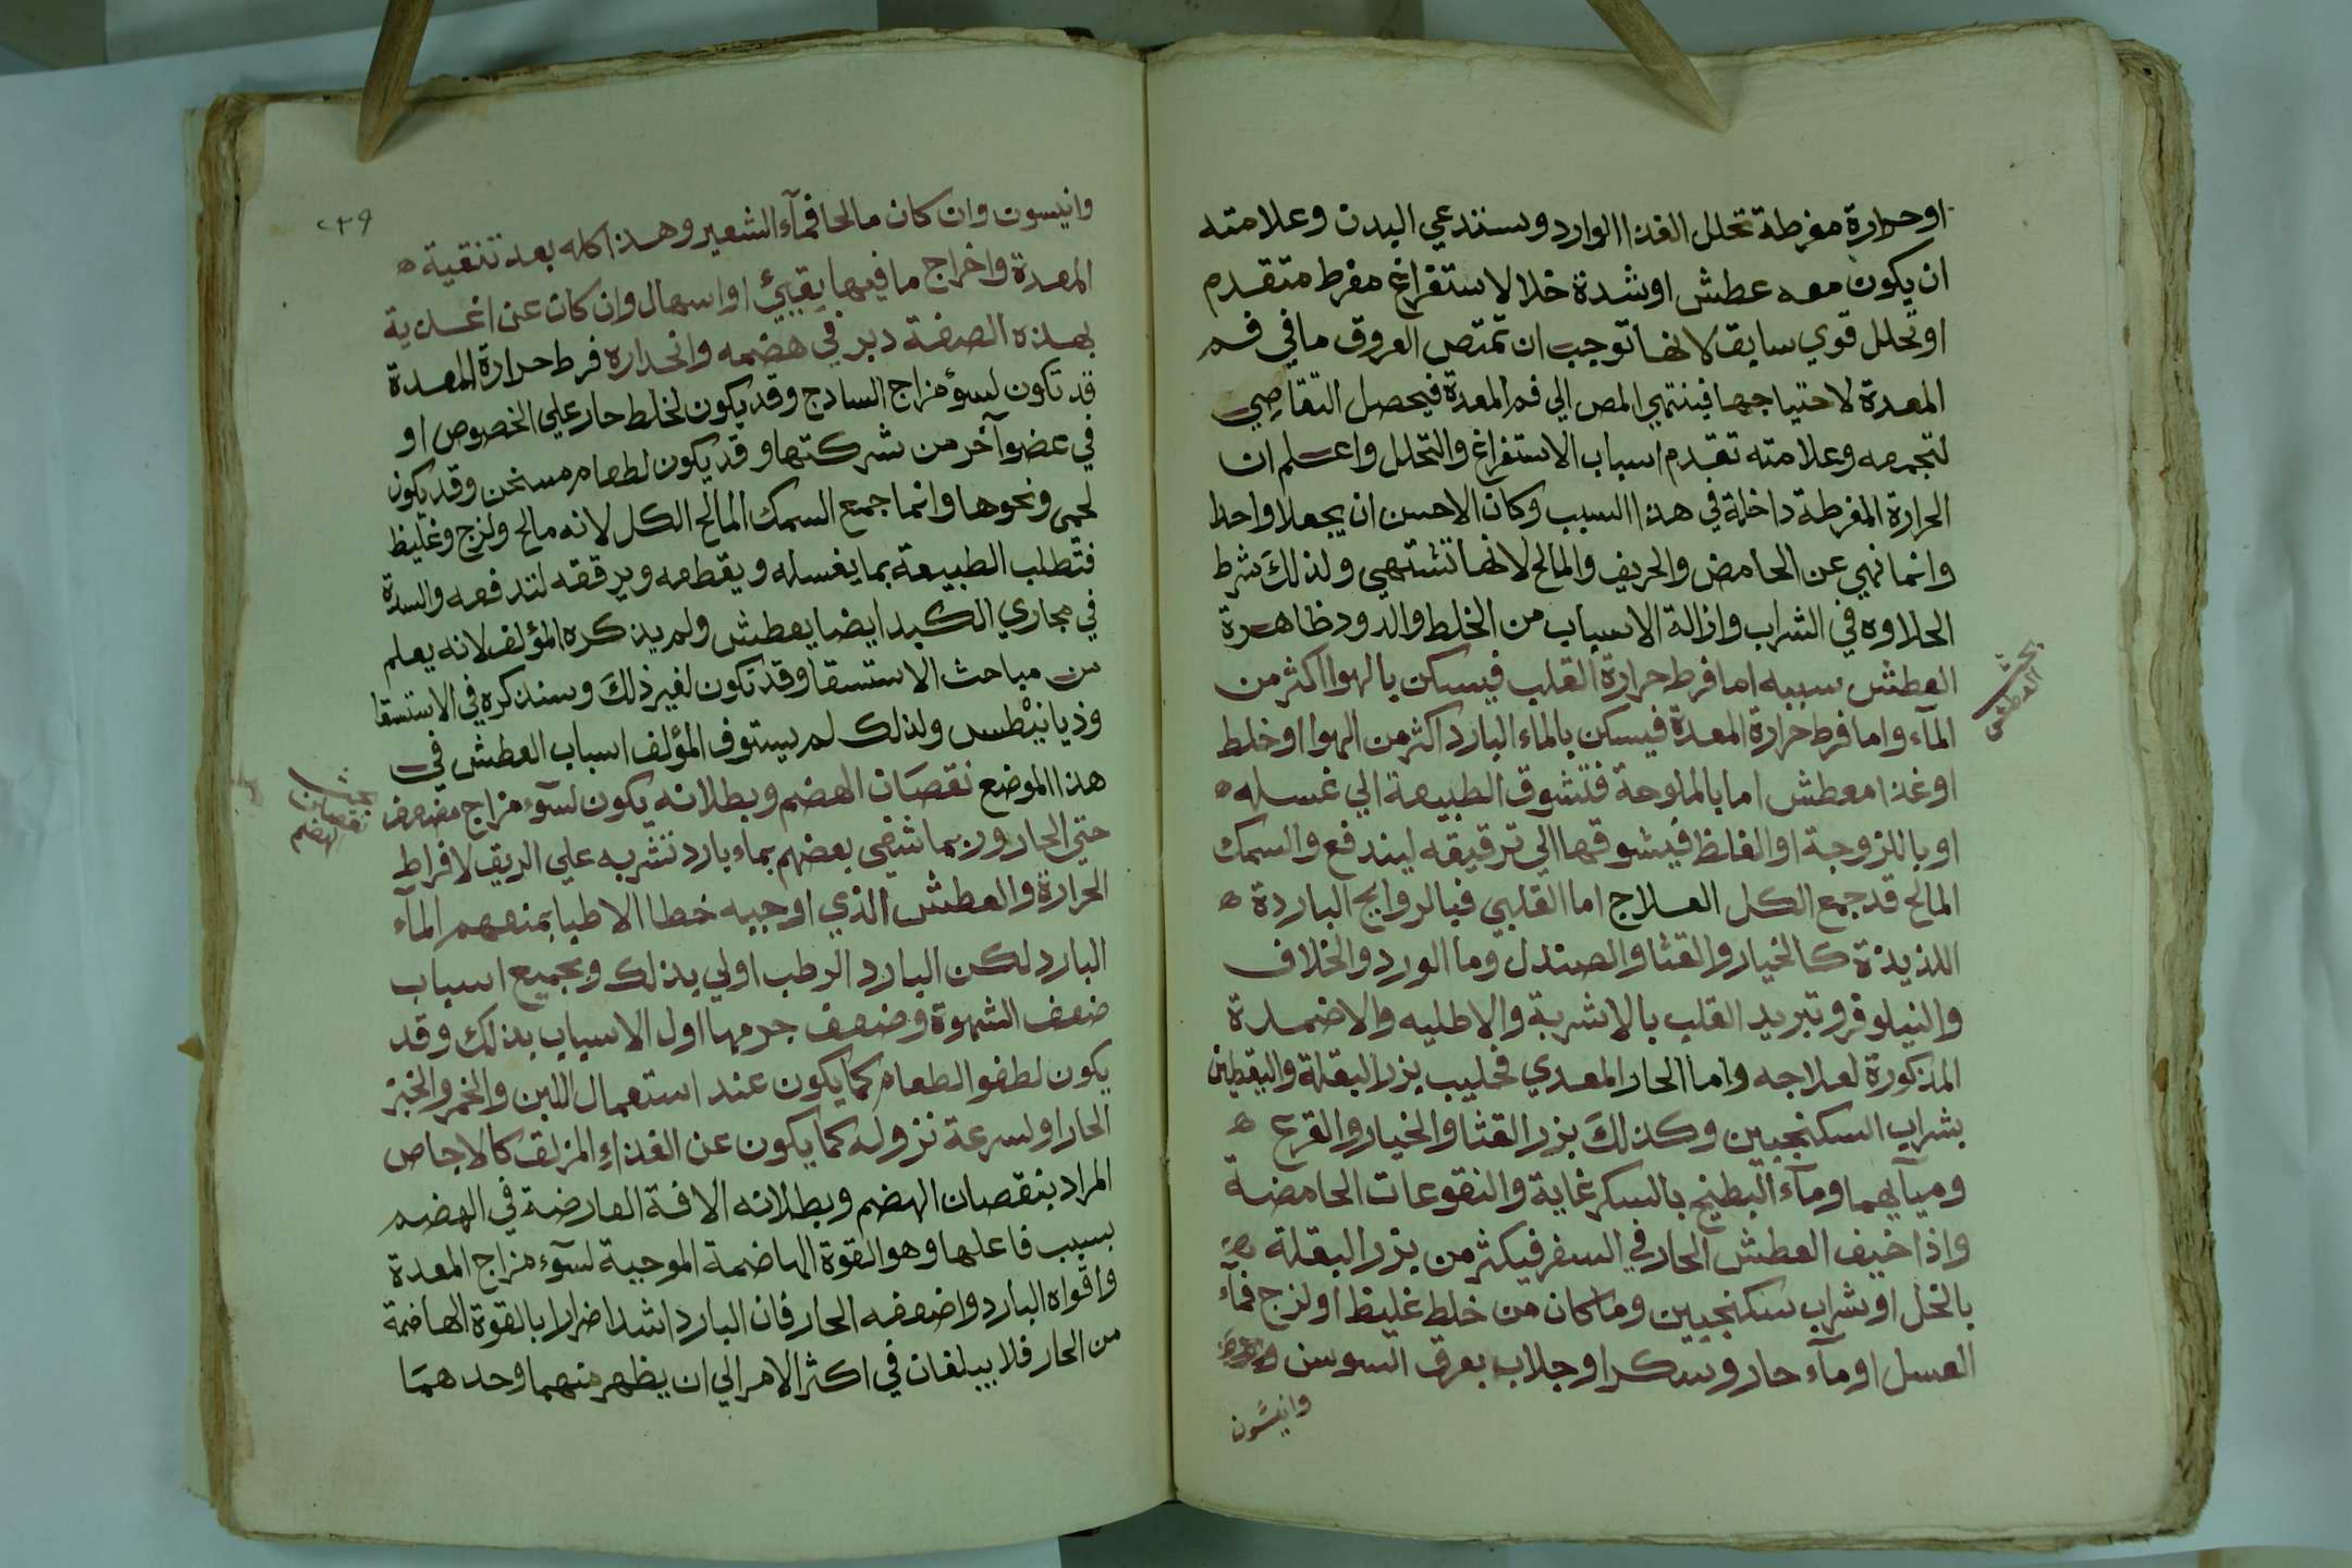 او حرارة مفرطة تحلل الغذا الوارد وستدعي البدن وعلامته
ان يكون معه عطش او شدة خلا لاستفراغ مفرط متقدم
او تحلل قوي سابق لانها توجب ان تمتص العروق ما في فم
المعدة لاحتياجها فينتهي المص الي فم المعدة فيحصل التقاضي
لتجمعه وعلامته تقدم اسباب الاستفراغ والتحلل واعلم ان
الحرارة المفرطة داخلة في هذا السبب وكان الاحسن ان يجعلا واحدا
وانما نهي عن الحامض والحريف والمالح لانها تشتهي ولذلك شرط
الحلاوه في الشراب وازالة الاسباب من الخلط والدود ظاهرة
العطش سببه اما فرط حرارة القلب فيسكن بالهوا اكثر من
المآء واما فرط حرارة المعدة فيسكن بالماء البارد اكثر من الهوا او خلط
او غذا معطش اما بالملوحة فتشوق الطبيعة الي غسله ه
او باللزوجة او الغلظ فيشوقها الي ترقيقه ليندفع والسمك
المالح قد جمع الكل العلاج اما القلبي فبالروايح الباردة ه
اللذيذة كالخيار والقثا والصندل وما الورد والخلاف
والنيلوفر وتبريد القلب بالاشربة والاطليه والاضمدة
المذكورة لعلاجه واما الحار المعدي فحليب بزر البقلة واليقطين
بشراب السكنجبين وكذلك بزر القثا والخيار والقرع ه
ومياههما ومآء البطيخ بالسكر غاية والنقوعات الحامضة
واذا خيف العطش الحار في السفر فيكثر من بزر البقلة
بالخل او بشراب سكنجبين وما كان من خلط غليظ او لزج فمآء
العسل او مآء حار وسكر او جلاب بعرق السوسن
وانيسون
بحث
العطش
٢٣٩
وانيسون وان كان مالحا فمآء الشعير وهذا كله بعد تنقية ه
المعدة واخراج ما فيها بقيئ او اسهال وان كان عن اغذية
بهذه الصفة دبر في هضمه وانحداره فرط حرارة المعدة
قد تكون لسؤ مزاج السادج وقد يكون لخلط حار علي الخصوص او
في عضو آخر من شركتها وقد يكون لطعام مسخن وقد يكون
لحمي ونحوها وانما جمع السمك المالح الكل لانه مالح ولزج وغليظ
فتطلب الطبيعة بما يغسله ويقطعه ويرققه لتدفعه والسدة
في مجاري الكبد ايضا يعطش ولم يذكره المؤلف لانه يعلم
من مباحث الاستسقا وقد تكون لغير ذلك وسنذكره في الاستسقا
وذيانيطس ولذلك لم يستوف المؤلف اسباب العطش في
هذا الموضع نقصان الهضم وبطلانه يكون لسوء مزاج مضعف
حتي الحار وربما شفي بعضهم بماء بارد نشربه علي الريق لافراط
الحرارة والعطش الذي اوجبه خطا الاطبا بمنعهم المآء
البارد لكن البارد الرطب اولي بذلك وبجميع اسباب
ضعف الشهوة وضعف جرمها اول الاسباب بذلك وقد
يكون لطفو الطعام كما يكون عند استعمال اللبن والخمر والخبز
الحار او لسرعة نزوله كما يكون عن الغذاء المزلق كالاجاص
المراد بنقصان الهضم وبطلانه الافة العارضة في الهضم
بسبب فاعلها وهو القوة الهاضمة الموجبة لسوء مزاج المعدة
واقواه البارد واضعفه الحار فان البارد اشد اضرارا بالقوة الهاضمة
من الحار فلا يبلغان في اكثر الامر الي ان يظهر منهما وحدهما
بحث
نقصان
الهضم